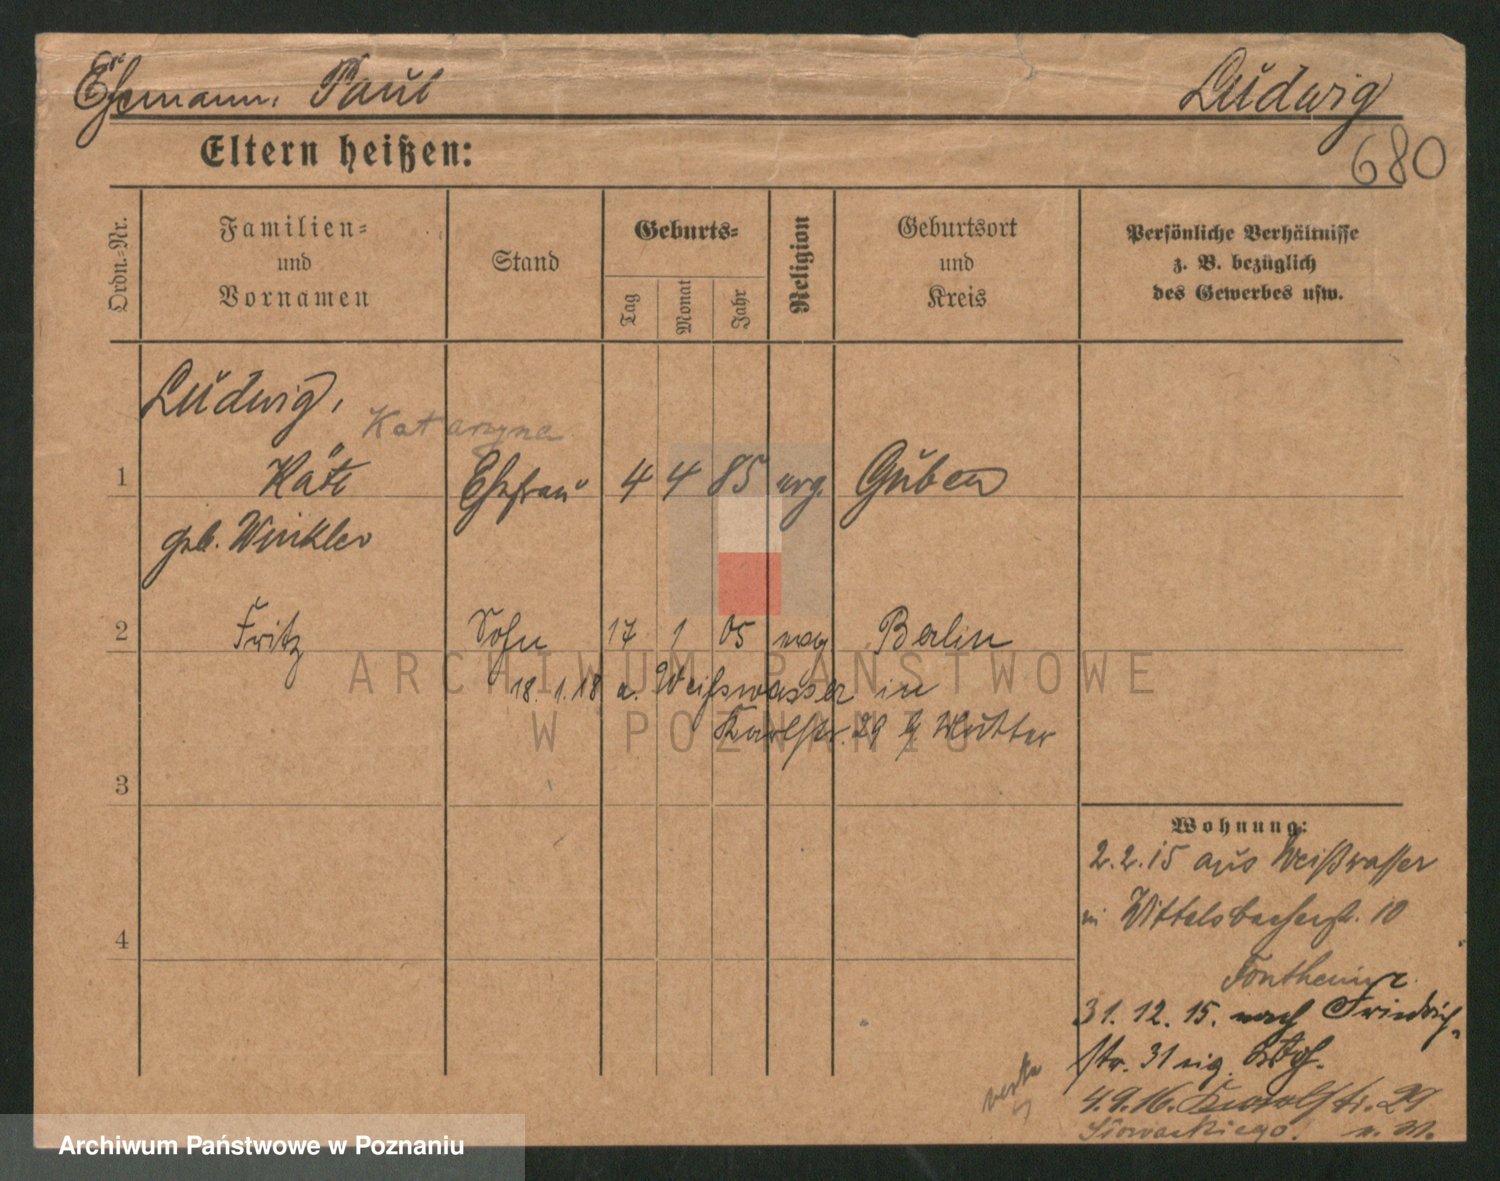 Ehemann: Paul Ludwig
680
Eltern heißen:
Ordn.-Nr.
Familien-
und
Vornamen
Stand
Geburts-
Tag
Monat
Jahr
Religion
Geburtsort
und
Kreis
Persönliche Verhältnisse
z. B. bezüglich
des Gewerbes usw.
Ludwig,
Katarzyna
1 Käte Ehefrau 4 4 85 evg. Guben
geb. Winkler
2 Fritz Sohn 17 1 05 evg Berlin
18. 1. 18 a. Weißwasser in
Karlstr. 29 Mutter
3
4
Wohnung:
2.2.15 aus Weißwasser
in Wittelsbacherstr. 10
Fontheim
31. 12. 15. nach Friedrich-
str. 31
4.9.16. Karlstr. 29
Słowackiego.
ARCHIWUM PAŃSTWOWE
W POZNANIU
Archiwum Państwowe w Poznaniu